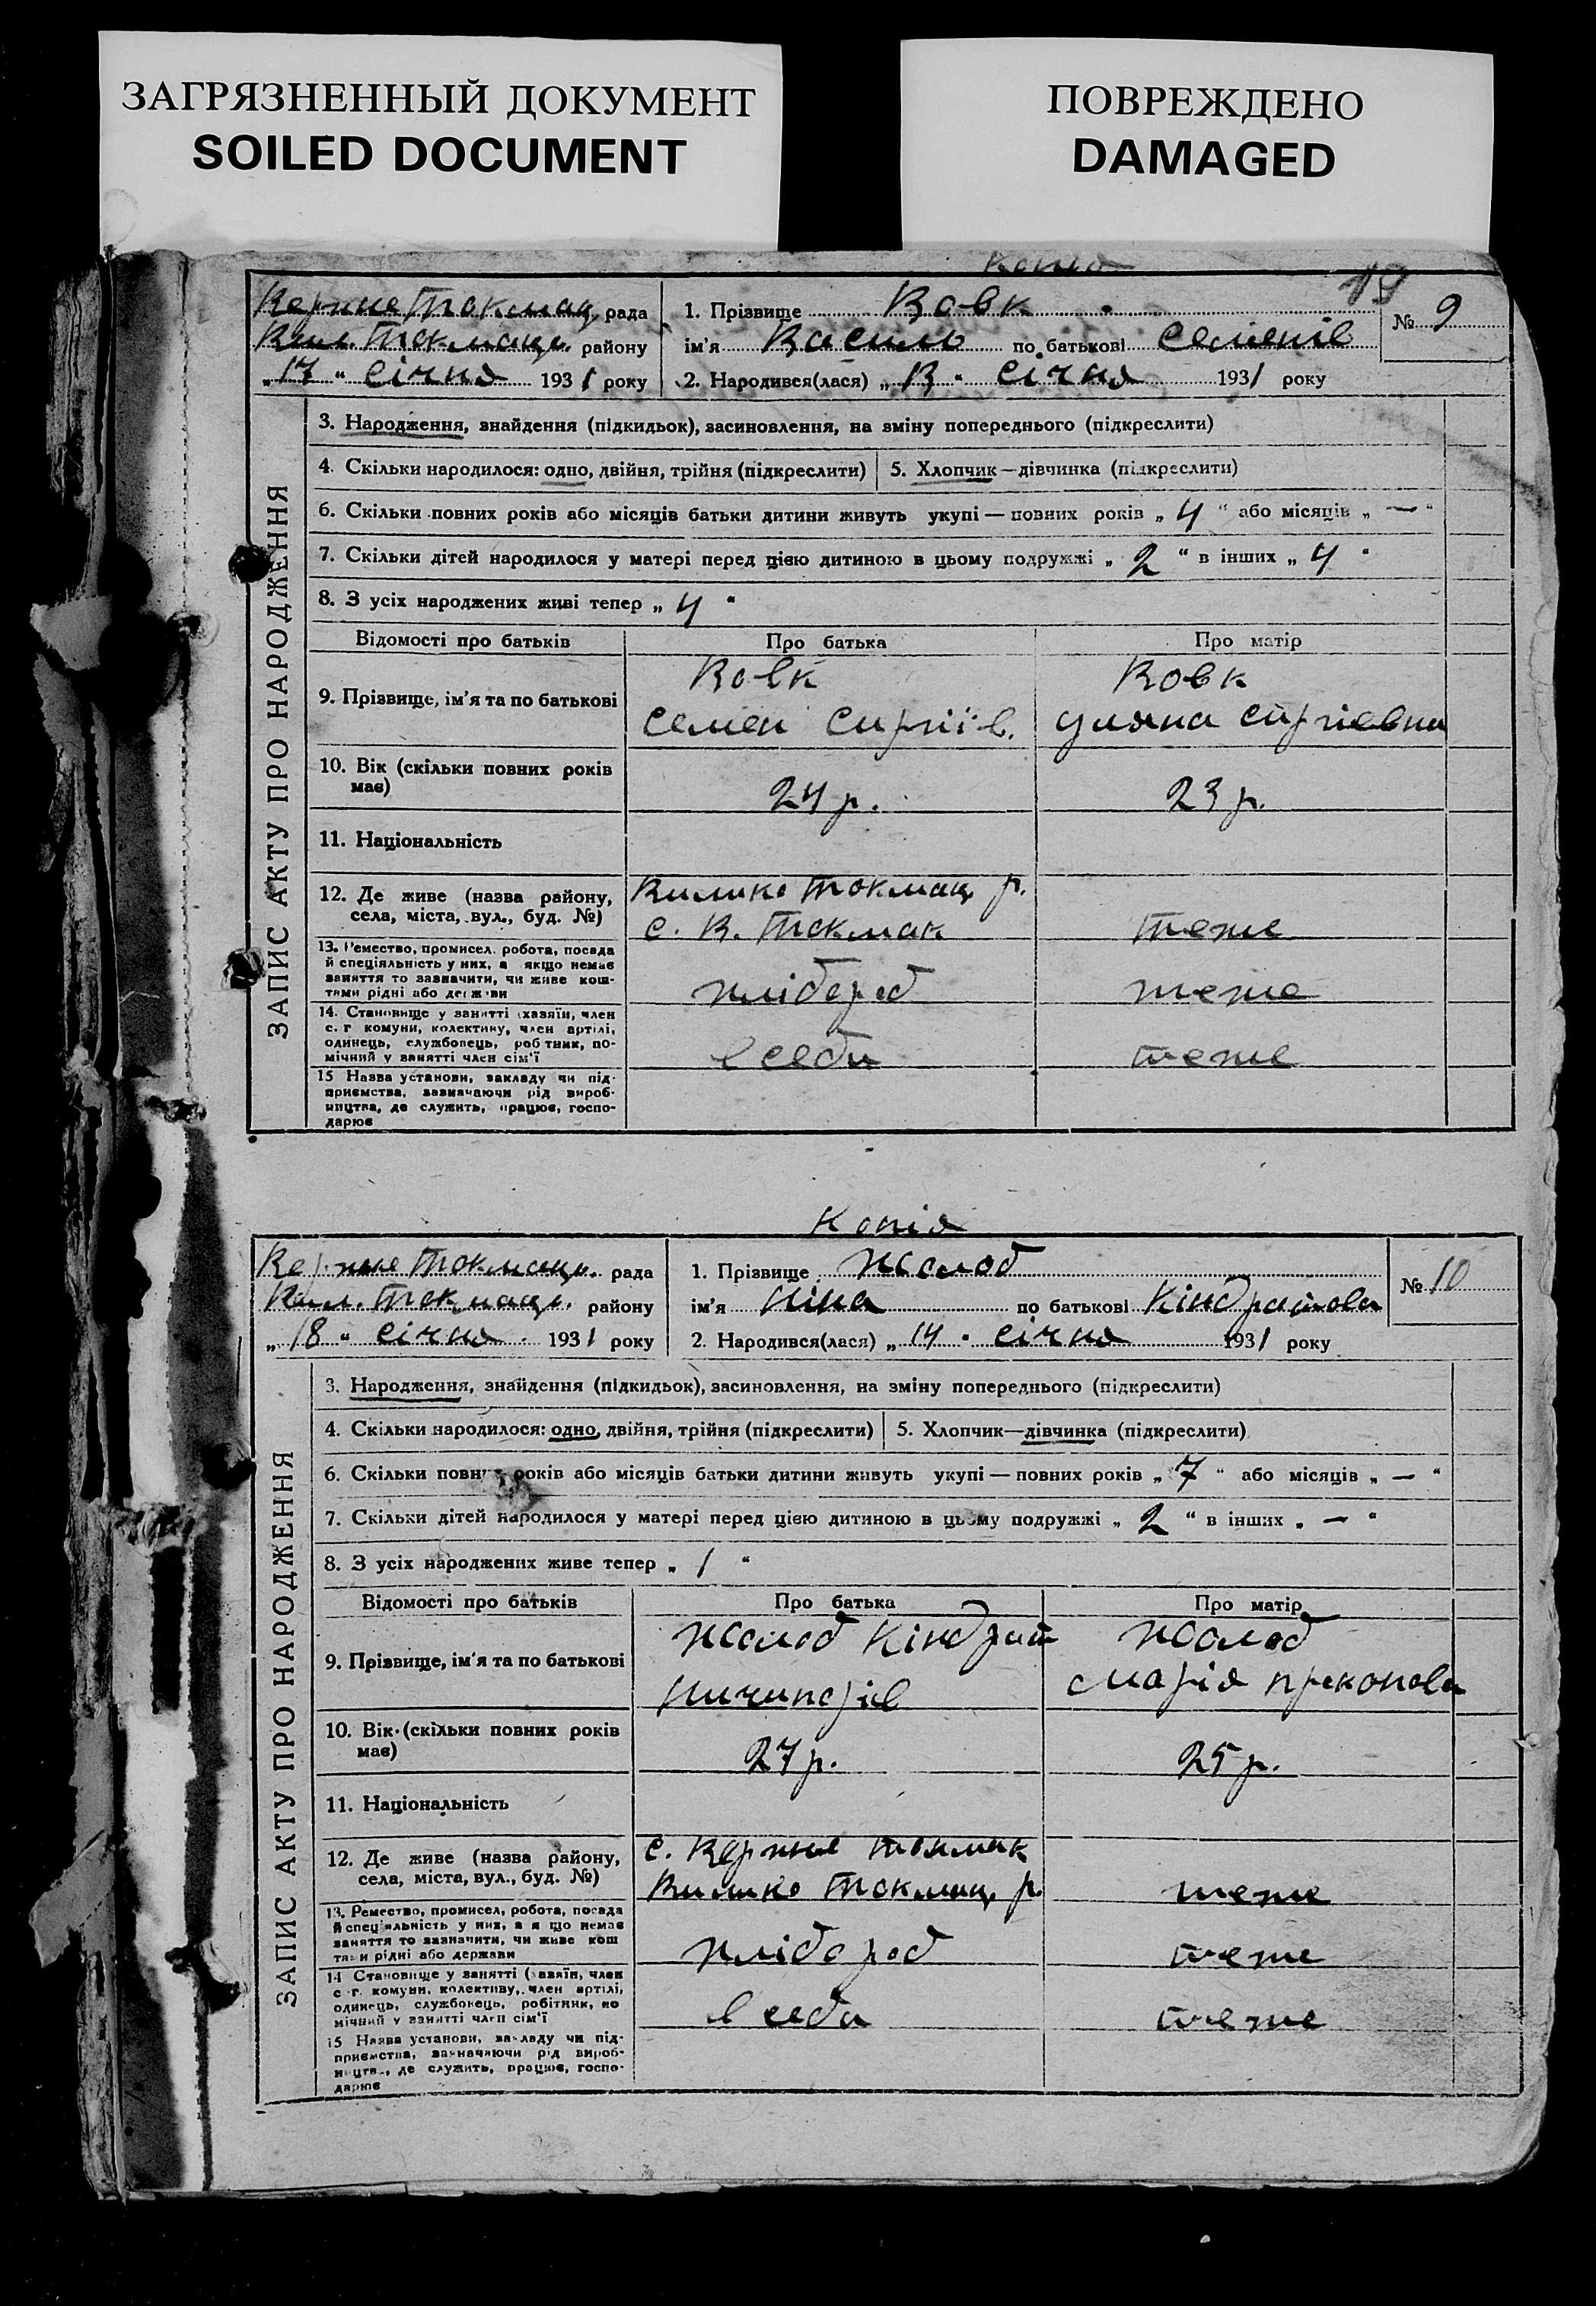 ЗАГРЯЗНЕННЫЙ ДОКУМЕНТ
SOILED DOCUMENT
ПОВРЕЖДЕНО
DAMAGED
Копія
19
Верхне Токмац. рада
Вел. Токмацьк. району
„17“ січня 1931 року
1. Прізвище Вовк
ім'я Василь по батькові Семенів
2. Народився(лася) „13“ січня 1931 року
№ 9
ЗАПИС АКТУ ПРО НАРОДЖЕННЯ
3. Народження, знайдення (підкидьок), засиновлення, на зміну попереднього (підкреслити)
4. Скільки народилося: одно, двійня, трійня (підкреслити) 5. Хлопчик—дівчинка (підкреслити)
6. Скільки повних років або місяців батьки дитини живуть укупі — повних років „4“ або місяців „—“
7. Скільки дітей народилося у матері перед цією дитиною в цьому подружжі „2“ в інших „4“
8. З усіх народжених живі тепер „4“
Відомості про батьків Про батька Про матір
9. Прізвище, ім'я та по батькові
Вовк
Семен Сиргіїв.
Вовк
Уляна Сиргіевна
10. Вік (скільки повних років має) 24 р. 23 р.
11. Національність
12. Де живе (назва району, села, міста, вул., буд. №)
Вилико Токмац. р.
с. В. Токмак
теже
13. Ремество, промисел, робота, посада
й спеціяльність у них, а якщо немає
заняття то зазначити, чи живе кош-
тами рідні або держави
хлібороб теже
14. Становище у занятті (хазяїн, член
с. г. комуни, колективу, член артілі,
одинець, службовець, робітник, по-
мічний у занятті член сім'ї
в себи теже
15 Назва установи, закладу чи під-
приємства, зазначаючи рід вироб-
ництва, де служить, працює, госпо-
дарює
Копія
Верхне Токмацьк. рада
Вел. Токмацьк. району
„18“ січня 1931 року
1. Прізвище Жолоб
ім'я Ніна по батькові Кіндратова
2. Народився(лася) „14“ січня 1931 року
№ 10
ЗАПИС АКТУ ПРО НАРОДЖЕННЯ
3. Народження, знайдення (підкидьок), засиновлення, на зміну попереднього (підкреслити)
4. Скільки народилося: одно, двійня, трійня (підкреслити) 5. Хлопчик—дівчинка (підкреслити)
6. Скільки повних років або місяців батьки дитини живуть укупі — повних років „7“ або місяців „—“
7. Скільки дітей народилося у матері перед цією дитиною в цьому подружжі „2“ в інших „—“
8. З усіх народжених живе тепер „1“
Відомості про батьків Про батька Про матір
9. Прізвище, ім'я та по батькові
Жолоб Кіндрат
Ничипорів
Жолоб
Марія Прокопова
10. Вік (скільки повних років має) 27 р. 25 р.
11. Національність
12. Де живе (назва району, села, міста, вул., буд. №)
с. Верхне Токмак
Вилико Токмац. р.
теже
13. Ремество, промисел, робота, посада
й спеціяльність у них, а якщо немає
заняття то зазначити, чи живе кош
тами рідні або держави
хлібороб теже
14 Становище у занятті (хазяїн, член
с. г. комуни, колективу, член артілі,
одинець, службовець, робітник, по
мічний у занятті член сім'ї
в себи теже
15 Назва установи, закладу чи під-
приємства, зазначаючи рід вироб-
ництва, де служить, працює, госпо-
дарює